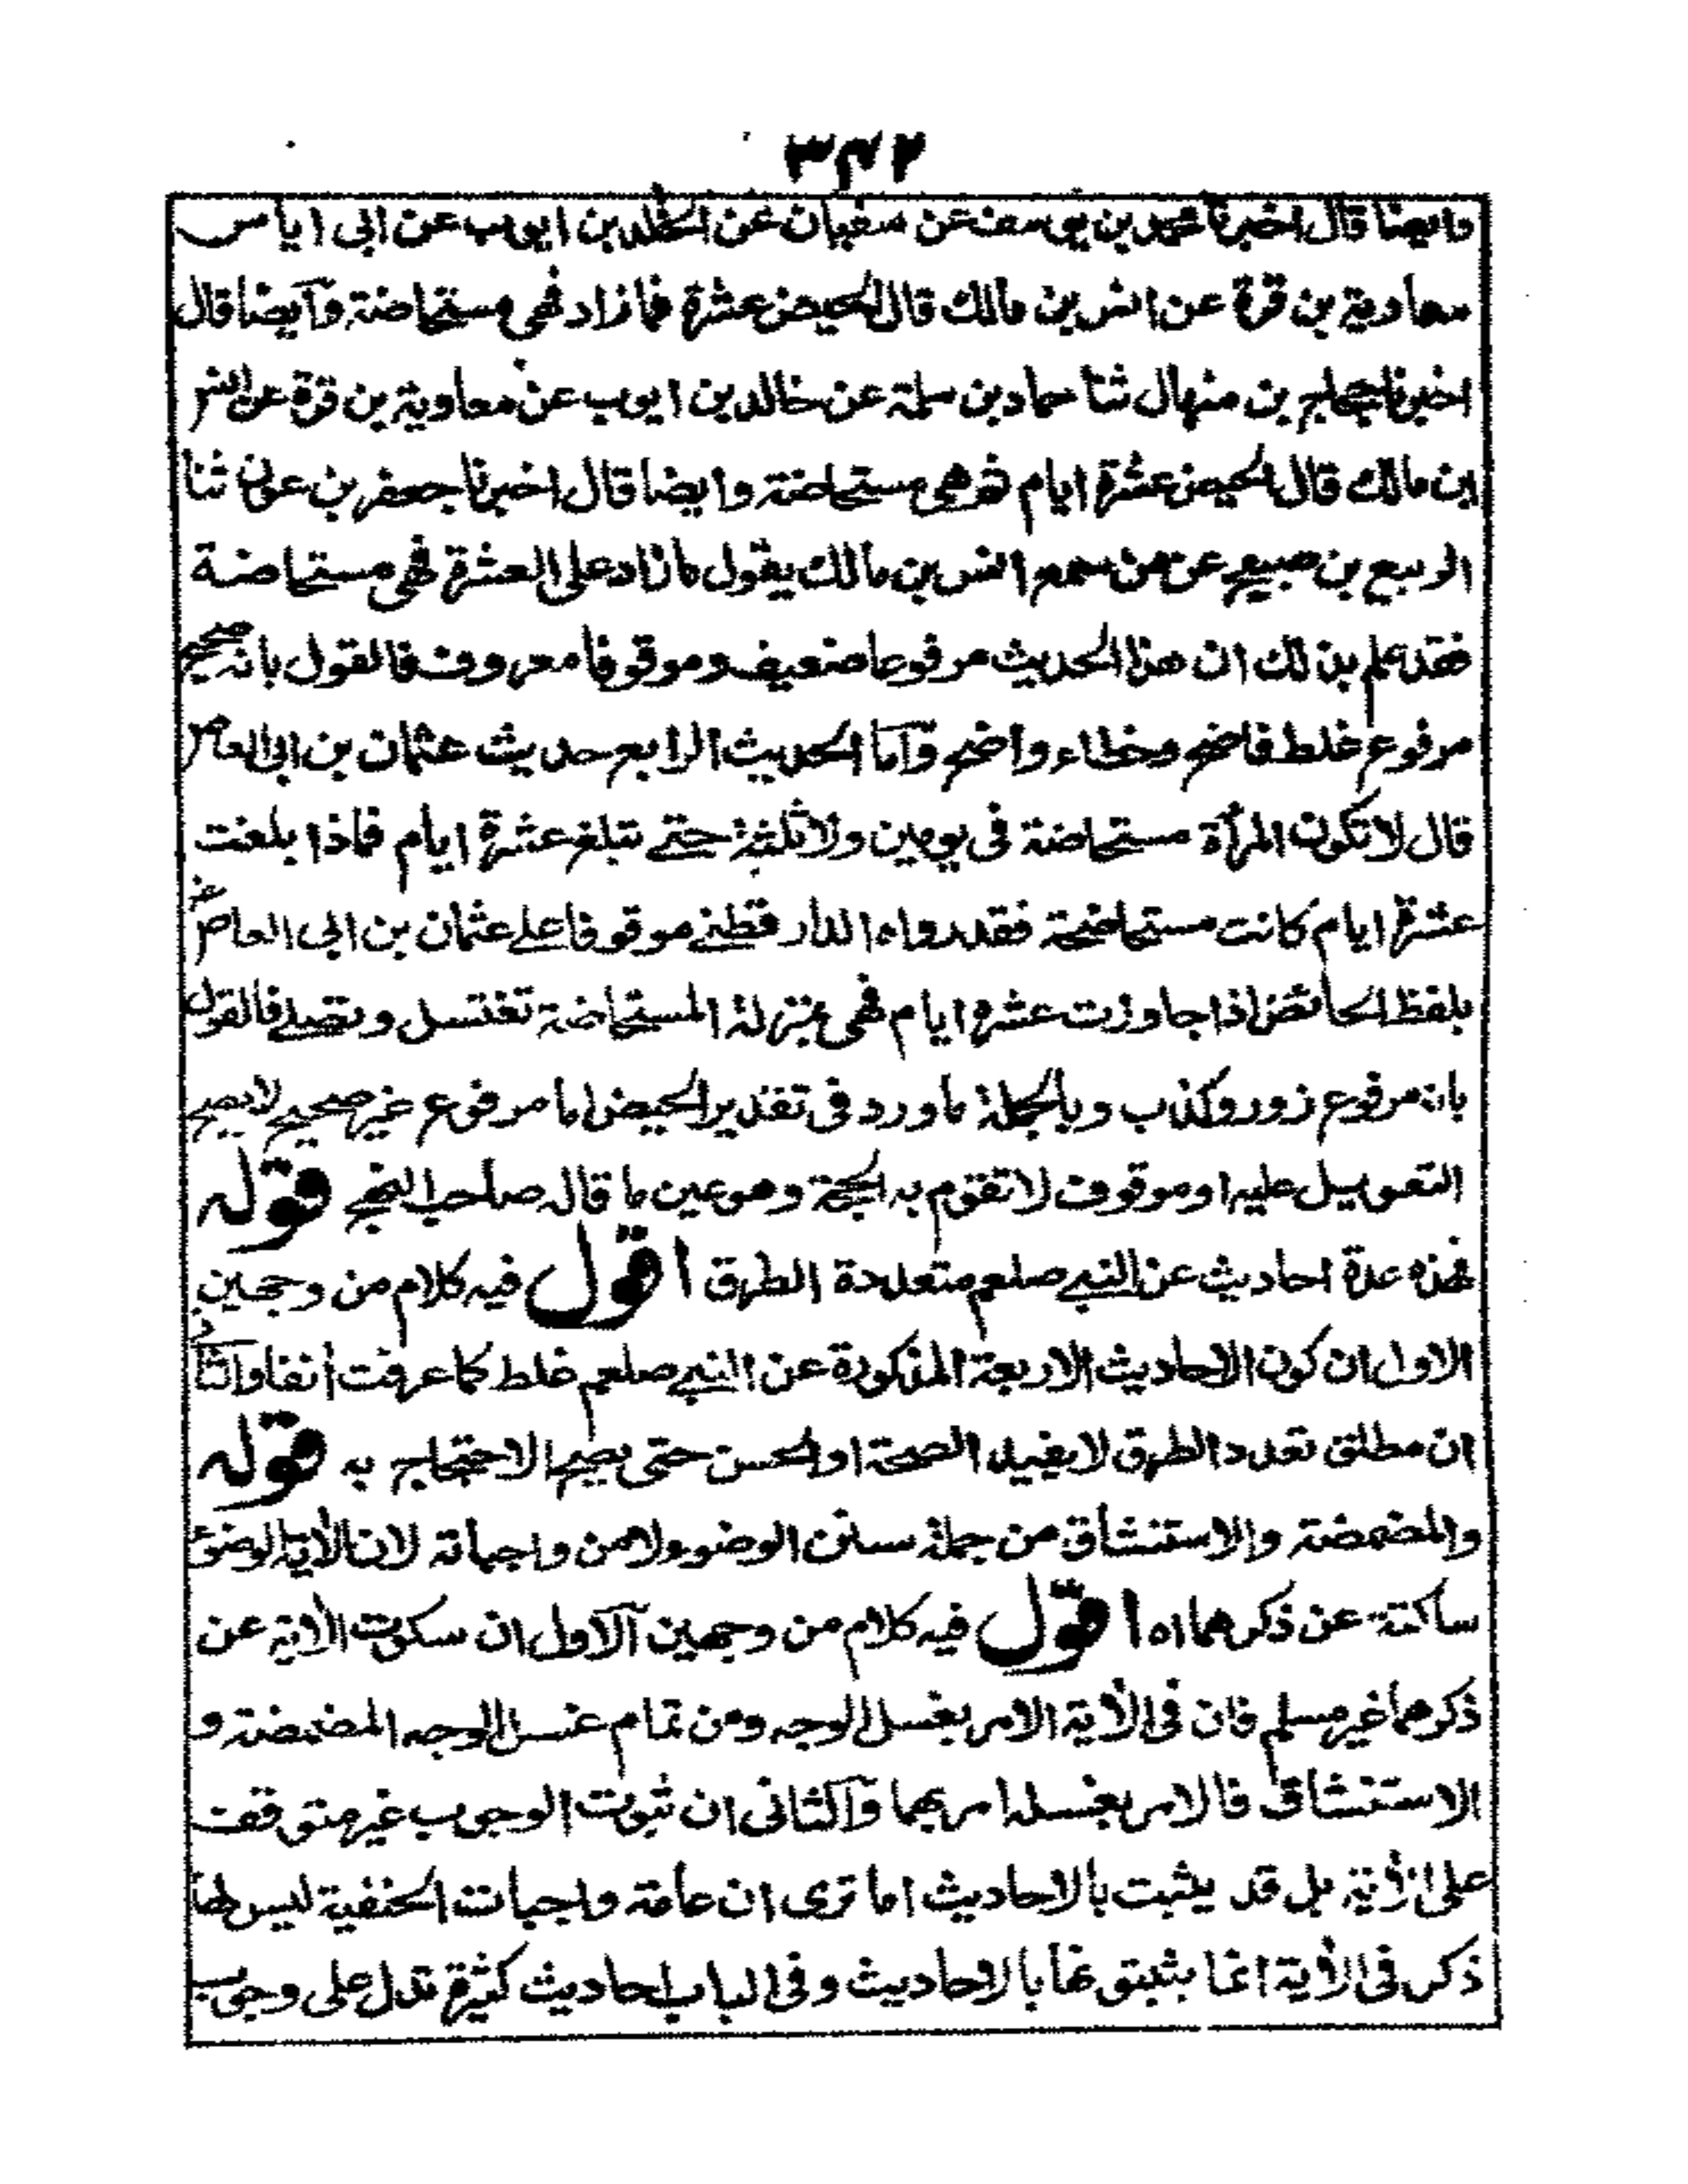 ٣٤٢
وايضا قال اخبرنا محمد بن يوسف عن سفيان عن الخلد بن ايوب عن ابى اياس
معاوية بن قرة عن انس بن مالك قال الحيض عشرة فما زاد فهى مستحاضة وايضا قال
اخبرنا حجاج بن منهال ثنا حماد بن سلمة عن خالد بن ايوب عن معاوية بن قرة عن انس
ابن مالك قال الحيض عشرة ايام ثم هى مستحاضة وايضا قال اخبرنا جعفر بن عون ثنا
الربيع بن صبيح عن من سمع انس بن مالك يقول ما زاد على العشرة فهى مستحاضة
فقد علم بذلك ان هذا الحديث مرفوعا ضعيف وموقوفا معروف فالقول بانه صحيح
مرفوع غلط فاضح وخطاء واضح وآما الحديث الرابع حديث عثمان بن ابى العاص
قال لا تكون المرأة مستحاضة فى يومين ولا ثلثة حتے تبلغ عشرة ايام فاذا بلغت
عشرة ايام كانت مستحاضة فقد رواه الدار قطنے موقوفا علے عثمان بن ابى العاص
بلفظ الحائض اذا جاوزت عشرة ايام فهى بمنزلة المستحاضة تغتسل وتصلے فالقول
بانه مرفوع زور وكذب وبالجملة ما ورد فى تقدير الحيض اما مرفوع غير صحيح لا يصح
التعويل عليه او موقوف لا تقوم به الحجة وهو عين ما قال صاحب النهج قوله
فهذه عدة احاديث عن النبے صلعم متعددة الطرق اقول فيه كلام من وجهين
الاول ان كون الاحاديث الاربعة المذكورة عن النبے صلعم غلط كما عرفت آنفا والثانى
ان مطلق تعدد الطرق لا يفيد الصحة او الحسن حتى يصح الاحتجاج به قوله
والمضمضة والاستنشاق من جملة سنن الوضوء لا من واجباته لان الآية الوضوء
ساكتة عن ذكرهما اه اقول فيه كلام من وجهين آلاول ان سكوت الآية عن
ذكرهما غير مسلم فان فى الآية الامر بغسل الوجه ومن تمام غسل الوجه المضمضة و
الاستنشاق فالامر بغسله امر بهما وآلثانى ان ثبوت الوجوب غير متوقف
على الآية بل قد يثبت بالاحاديث اما ترى ان عامة واجبات الحنفية ليس لها
ذكر فى الآية انما يثبتونها بالاحاديث وفى الباب احاديث كثيرة تدل على وجوب